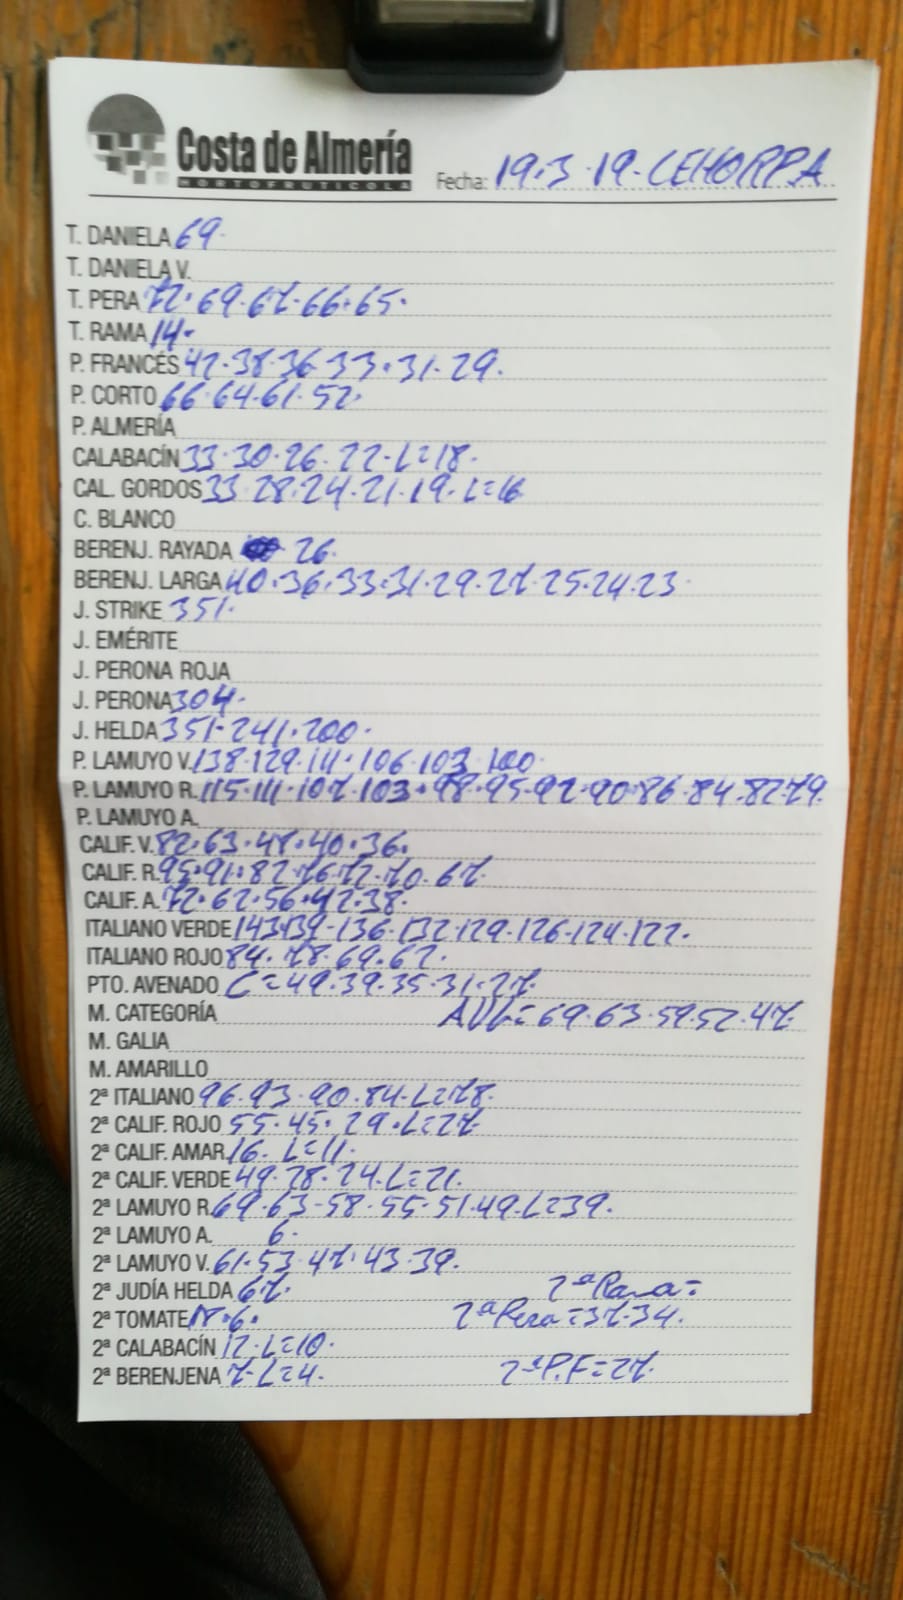 Costa de Almería
HORTOFRUTICOLA
Fecha: 19.3.19-CEHORPA
T. DANIELA 69.
T. DANIELA V.
T. PERA 72.69.67.66.65.
T. RAMA 14.
P. FRANCÉS 42.38.36.33.31.29.
P. CORTO 66.64.61.52.
P. ALMERÍA
CALABACÍN 33.30.26.22-L=18.
CAL. GORDOS 33.28.24.21.19.L=16
C. BLANCO
BERENJ. RAYADA 26.
BERENJ. LARGA 40.36.33.31.29.27.25.24.23.
J. STRIKE 351.
J. EMÉRITE
J. PERONA ROJA
J. PERONA 304.
J. HELDA 351-241.200.
P. LAMUYO V. 138.129.111.106.103.100.
P. LAMUYO R. 115.111.107.103.98.95.92.90.86.84.82.79.
P. LAMUYO A.
CALIF. V. 82.63.47.40.36.
CALIF. R. 95.91.82.76.72.70.67
CALIF. A. 72.62.56.42.38.
ITALIANO VERDE 143.139-136.132.129.126.124.122.
ITALIANO ROJO 84.78.69.62.
PTO. AVENADO C=49.39.35.31.27.
M. CATEGORÍA AVG=69.63.59.52.47
M. GALIA
M. AMARILLO
2ª ITALIANO 96.93.90.84-L=78.
2ª CALIF. ROJO 55.45.29.L=27
2ª CALIF. AMAR. 16.L=11.
2ª CALIF. VERDE 49.28.24.L=21.
2ª LAMUYO R. 69.63-58.55.51.49.L=39.
2ª LAMUYO A. 6.
2ª LAMUYO V. 61.53.47.43.39.
2ª JUDÍA HELDA 67. 2ª Rama=
2ª TOMATE 18.6. 2ª Pera=37.34.
2ª CALABACÍN 12.L=10.
2ª BERENJENA 7-L=4. 2ª P.F=27